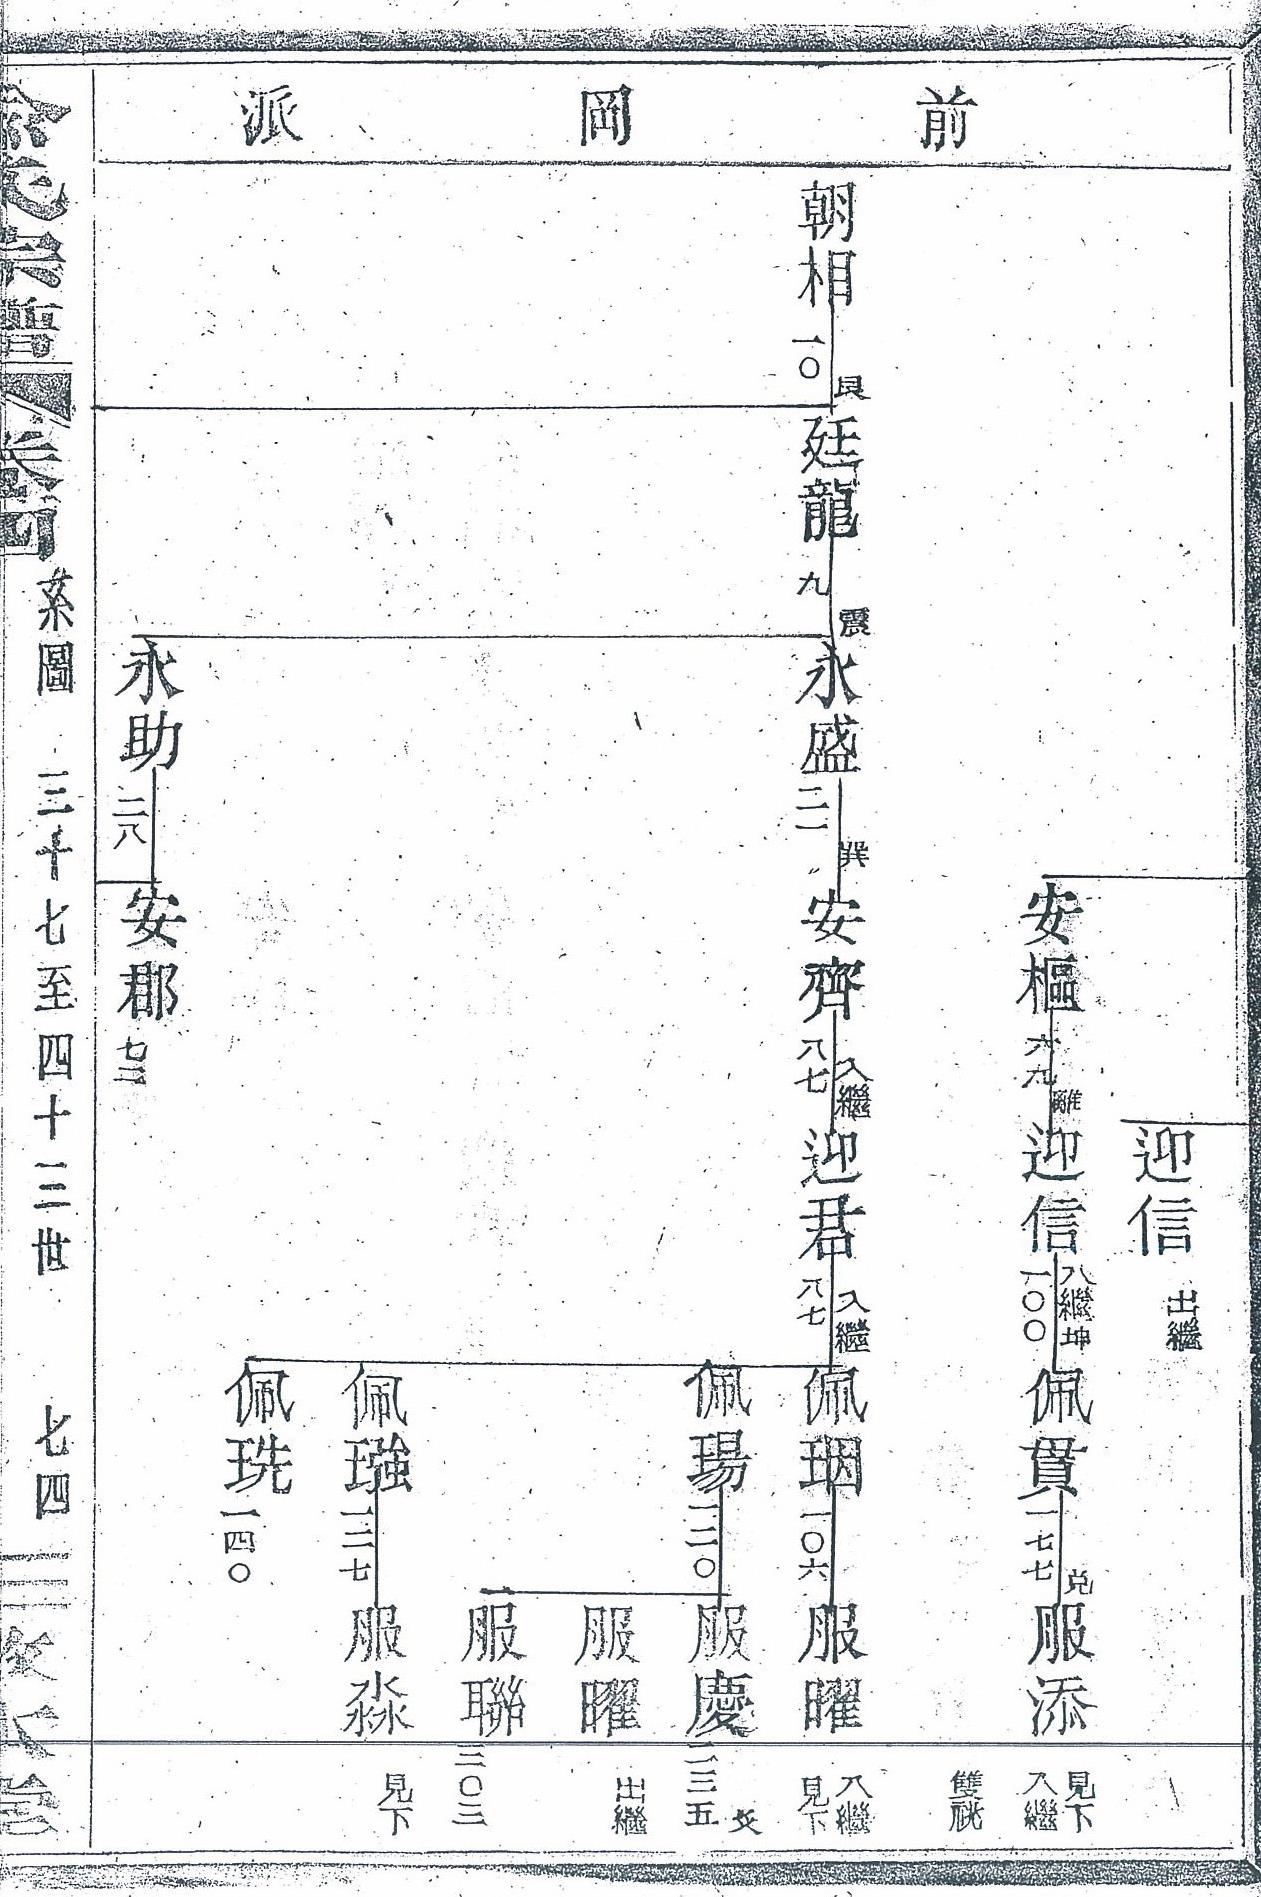 前岡派
迎信 出繼
安樞 六九 離
迎信 一〇〇 入繼 坤
佩貫 一七七 兌
服添 見下 入繼 雙祧
朝相 一〇 艮
廷龍 九 震
永盛 二一 巽
安齊 八七 入繼
迎君 八七 入繼
佩珚 一〇六
服曜 入繼 見下
佩瑒 一二〇
服慶 二三五
服曜 出繼
服聯 三〇三
佩 一二七
服淼 見下
佩珗 一四〇
永助 二八
安郡 七三
宗譜 卷四 系圖 三十七至四十三世 七四